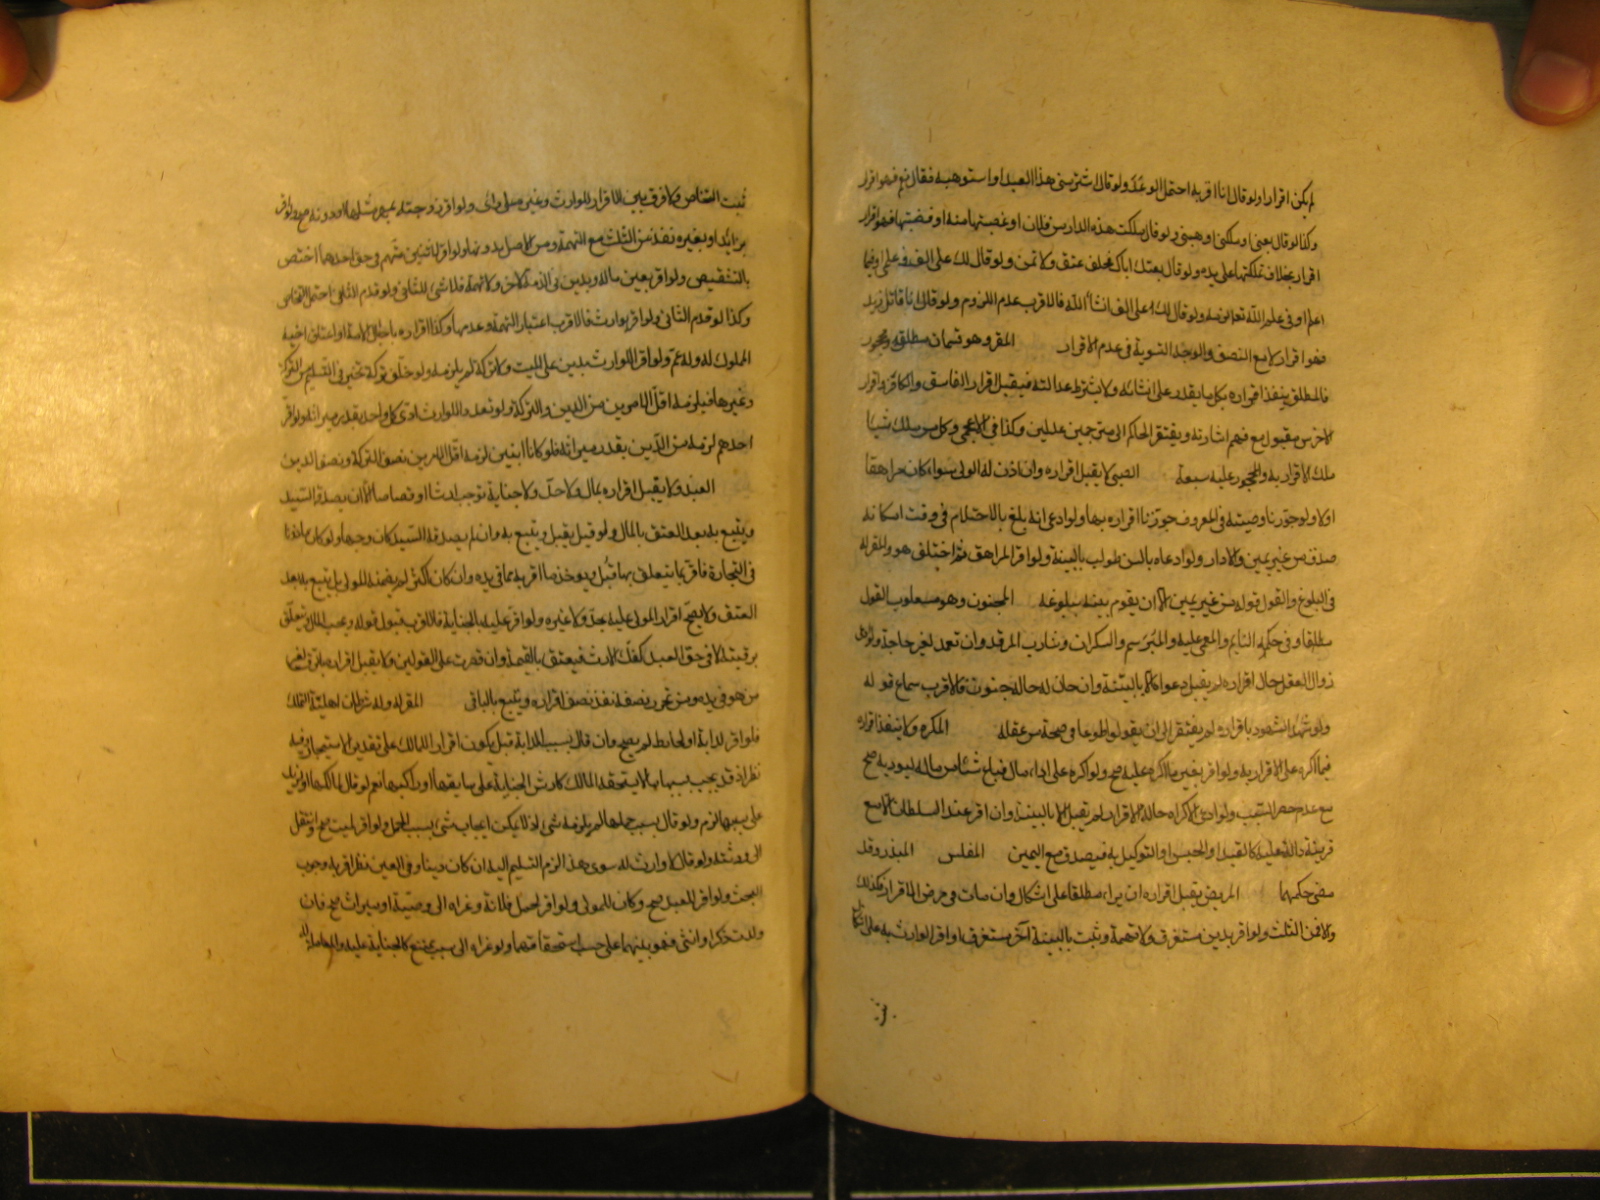 لم يكن اقرارا ولو قال انا اقر به احتمل الوعد ولو قال اشتر مني هذا العبد او استوهبه فقال نعم فهو اقرار
وكذا لو قال بعني او ملكني او هبني ولو قال ملكت هذه الدار من فلان او غصبتها منه او قبضتها فهو اقرار
اقرار بخلاف تملكتها على يده ولو قال بعتك اباك فحلف عتق ولا ثمن ولو قال لك على الف في علمي او فيما
اعلم او في علم الله تعالى لزمه ولو قال لك على الف ان شاء الله فالاقرب عدم اللزوم ولو قال انا قاتل زيد
فهو اقرار لا مع النصب والوجه التسوية في عدم الاقرار المقر وهو قسمان مطلق ومحجور
فالمطلق ينفذ اقراره بكل ما يقدر على انشائه ولا يشترط عدالته فيقبل اقرار الفاسق والكافر واقرار
الاخرس مقبول مع فهم اشارته ويفتقر الحاكم الى مترجمين عدلين وكذا في الاعجمي وكل من ملك شيئا
ملك الاقرار به والمحجور عليه سبعة الصبي لا يقبل اقراره وان اذن له الولي سواء كان مراهقا
اولا ولو جوزنا وصيته في المعروف جوزنا اقراره بها ولو ادعى انه بلغ بالاحتلام في وقت امكانه
صدق من غير يمين والا دار ولو ادعاه بالسن طولب بالبينة ولو اقر المراهق ثم اختلف هو والمقر له
في البلوغ والقول قوله من غير يمين الا ان يقوم بينة ببلوغه المجنون وهو مسلوب القول
مطلقا وفي حكمه النايم والمغمى عليه والمبرسم والسكران وشارب المرقد وان تعمد لغير حاجة ولو ادعى
زوال العقل حال اقراره لم يقبل دعواه الا بالبينة وان كان له حالة جنون فالاقرب سماع قوله
ولو شهد الشهود باقراره لم يفتقر الى ان يقولوا طوعا في صحة من عقله المكره ولا ينفذ اقراره
فيما اكره على الاقرار به ولو اقر بغير ما اكره عليه صح ولو اكره على اداء مال فباع شيئا من ماله ليوديه صح
مع عدم حصر السبب ولو ادعى الاكراه حالة الاقرار لم يقبل الا بالبينة وان اقر عند السلطان الا مع
قرينة دالة عليه كالقيد او الحبس او التوكيل به فيصدق مع اليمين المفلس المبذر وقد
مضى حكمهما المريض يقبل اقراره ان برا مطلقا على اشكال وان مات في مرض الاقرار فكذلك
والا فمن الثلث ولو اقر بدين مستغرق ولا تهمة وثبت بالبينة آخر مستغرق او اقر الوارث به على اشكال
ثبت التقاص ولا فرق بين الاقرار للوارث وغيره على راي ولو اقر لزوجته بمهر مثلها او دونه صح ولو اقر
بزائد او بغيره نفذ من الثلث مع التهمة ومن الاصل بدونها ولو اقر لاثنين متهم في حق احدهما اختص
بالتنقيص ولو اقر بعين ماله وبدين في الذمة لآخر ولا تهمة فلا شئ للثاني ولو قدم الثاني احتمل التقاص
وكذا لو قدم الثاني ولو اقر بوارث فالاقرب اعتبار التهمة وعدمها وكذا اقراره باحبال الامة او اعتاق اخيه
المملوك له وله عم ولو اقر الوارث بدين على الميت ولا تركة لم يلزمه ولو خلف تركة تخير في التسليم من التركة
وغيرها فيلزمه اقل الامرين من الدين والتركة ولو تعدد الوارث ادى كل واحد بقدر ميراثه ولو اقر
احدهم لزمه من الدين بقدر ميراثه فلو كانا ابنين لزمه اقل الامرين نصف التركة ونصف الدين
العبد ولا يقبل اقراره بمال ولا حد ولا جناية توجب ارشا او قصاصا الا ان يصدقه السيد
ويتبع به بعد العتق بالمال ولو قيل يقبل ويتبع به وان لم يصدقه السيد كان وجها ولو كان ماذونا
في التجارة فاقر بما يتعلق بها قبل ويوخذ ما اقر به مما في يده وان كان اكثر لم يضمنه المولى بل يتبع به بعد
العتق ولا يصح اقرار المولى عليه بحد ولا غيره ولو اقر عليه بالجناية فالاقرب قبول قوله ويجب المال ويتعلق
برقبته لا في حق العبد كفك الارث فيعتق بالقيمة وان قصرت على القولين ولا يقبل اقراره
من هو في يده ومن تحرر نصفه نفذ نصف اقراره ويتبع بالباقي المقر له وله شرطان اهلية التملك
فلو اقر لدابة او لحايط لم يصح وان قال بسبب الدابة قيل يكون اقرارا للمالك على تقدير الاستيجار وفيه
نظر اذ قد يجب بسببها ما لا يستحقه المالك كارش الجناية على سايقها او راكبها نعم لو قال لمالكها او لزيد
على بسببها لزم ولو قال بسبب حملها لم يلزمه شئ اذ لا يمكن ايجاب شئ بسبب الحمل ولو اقر لميت صح وانتقل
الى ورثته ولو قال لا وارث له سوى هذا الزم التسليم اليه ان كان دينا وفي العين نظر اقربه وجوب
البحث ولو اقر للعبد صح وكان للمولى ولو اقر لحمل فلانة وعزاه الى وصية او ميراث صح فان
ولدت ذكرا وانثى فهو بينهما على حسب استحقاقهما ولو عزاه الى سبب ممتنع كالجناية عليه والمعاملة له